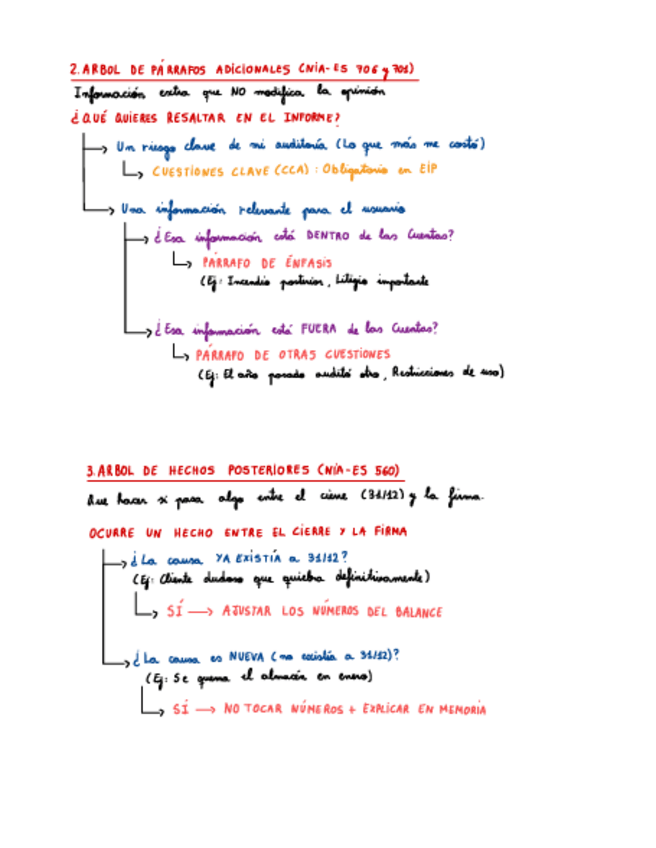 2. ARBOL DE PÁRRAFOS ADICIONALES (NIA-ES 706 y 701)
Información extra que NO modifica la opinión
¿QUÉ QUIERES RESALTAR EN EL INFORME?
Un riesgo clave de mi auditoría (Lo que más me costó)
CUESTIONES CLAVE (CCA): Obligatorio en EIP
Una información relevante para el usuario
¿Esa información está DENTRO de las Cuentas?
PÁRRAFO DE ÉNFASIS
(Ej: Incendio posterior, Litigio importante
¿Esa información está FUERA de las Cuentas?
PÁRRAFO DE OTRAS CUESTIONES
(Ej: El año pasado auditó otro, Restricciones de uso)
3. ARBOL DE HECHOS POSTERIORES (NIA-ES 560)
Que hacer si pasa algo entre el cierre (31/12) y la firma.
OCURRE UN HECHO ENTRE EL CIERRE Y LA FIRMA
¿La causa YA EXISTÍA a 31/12?
(Ej: Cliente dudoso que quiebra definitivamente)
SÍ → AJUSTAR LOS NÚMEROS DEL BALANCE
¿La causa es NUEVA (no existía a 31/12)?
(Ej: Se quema el almacén en enero)
SÍ → NO TOCAR NÚMEROS + EXPLICAR EN MEMORIA